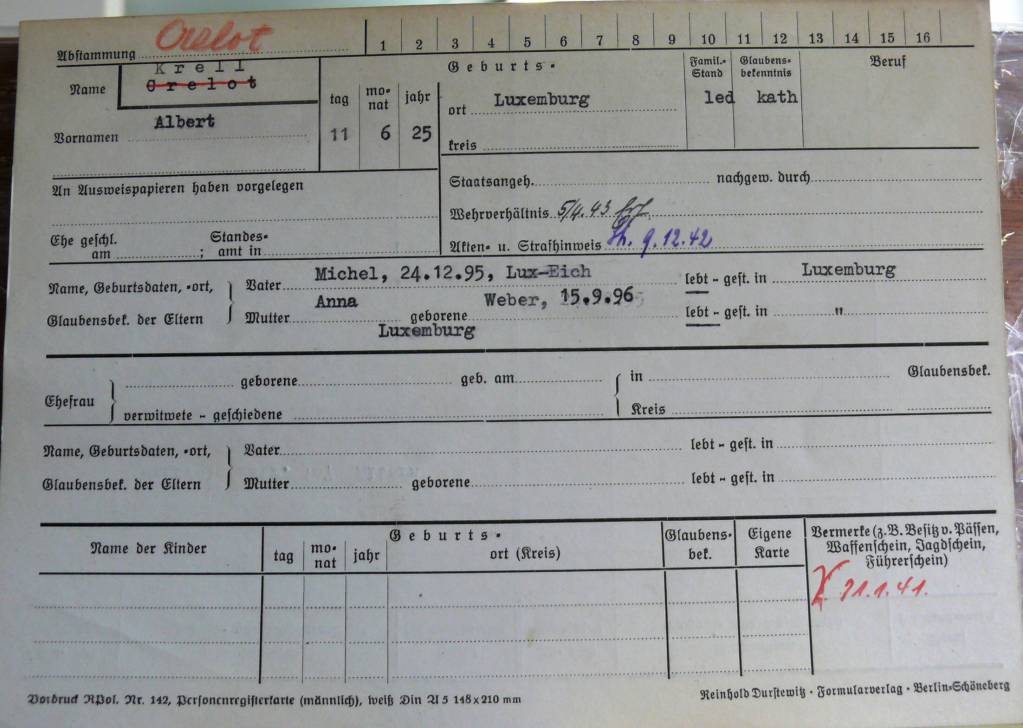 Abstammung Orelot 1 2 3 4 5 6 7 8 9 10 11 12 13 14 15 16
Name Krell
Orelot
tag mo-nat jahr
Geburts-
Famil.-Stand Glaubens-bekenntnis Beruf
ort Luxemburg led kath
Vornamen Albert 11 6 25
kreis
An Ausweispapieren haben vorgelegen
Staatsangeh. nachgew. durch
Wehrverhältnis 5/4.43
Ehe geschl. am ; Standes-amt in
Akten- u. Strafhinweis 9.12.42
Name, Geburtsdaten, -ort, Vater Michel, 24.12.95, Lux-Eich lebt - gest. in Luxemburg
Glaubensbek. der Eltern Mutter Anna geborene Weber, 15.9.96 lebt - gest. in "
Luxemburg
geborene geb. am in Glaubensbek.
Ehefrau
verwitwete - geschiedene Kreis
Name, Geburtsdaten, -ort, Vater lebt - gest. in
Glaubensbek. der Eltern Mutter geborene lebt - gest. in
Name der Kinder
Geburts-
tag mo-nat jahr ort (Kreis)
Glaubens-bek.
Eigene Karte
Vermerke (z.B. Besitz v. Pässen,
Waffenschein, Jagdschein,
Führerschein)
21.1.41.
Vordruck RPol. Nr. 142, Personenregisterkarte (männlich), weiß Din A 5 148x210 mm
Reinhold Durstewitz · Formularverlag · Berlin-Schöneberg